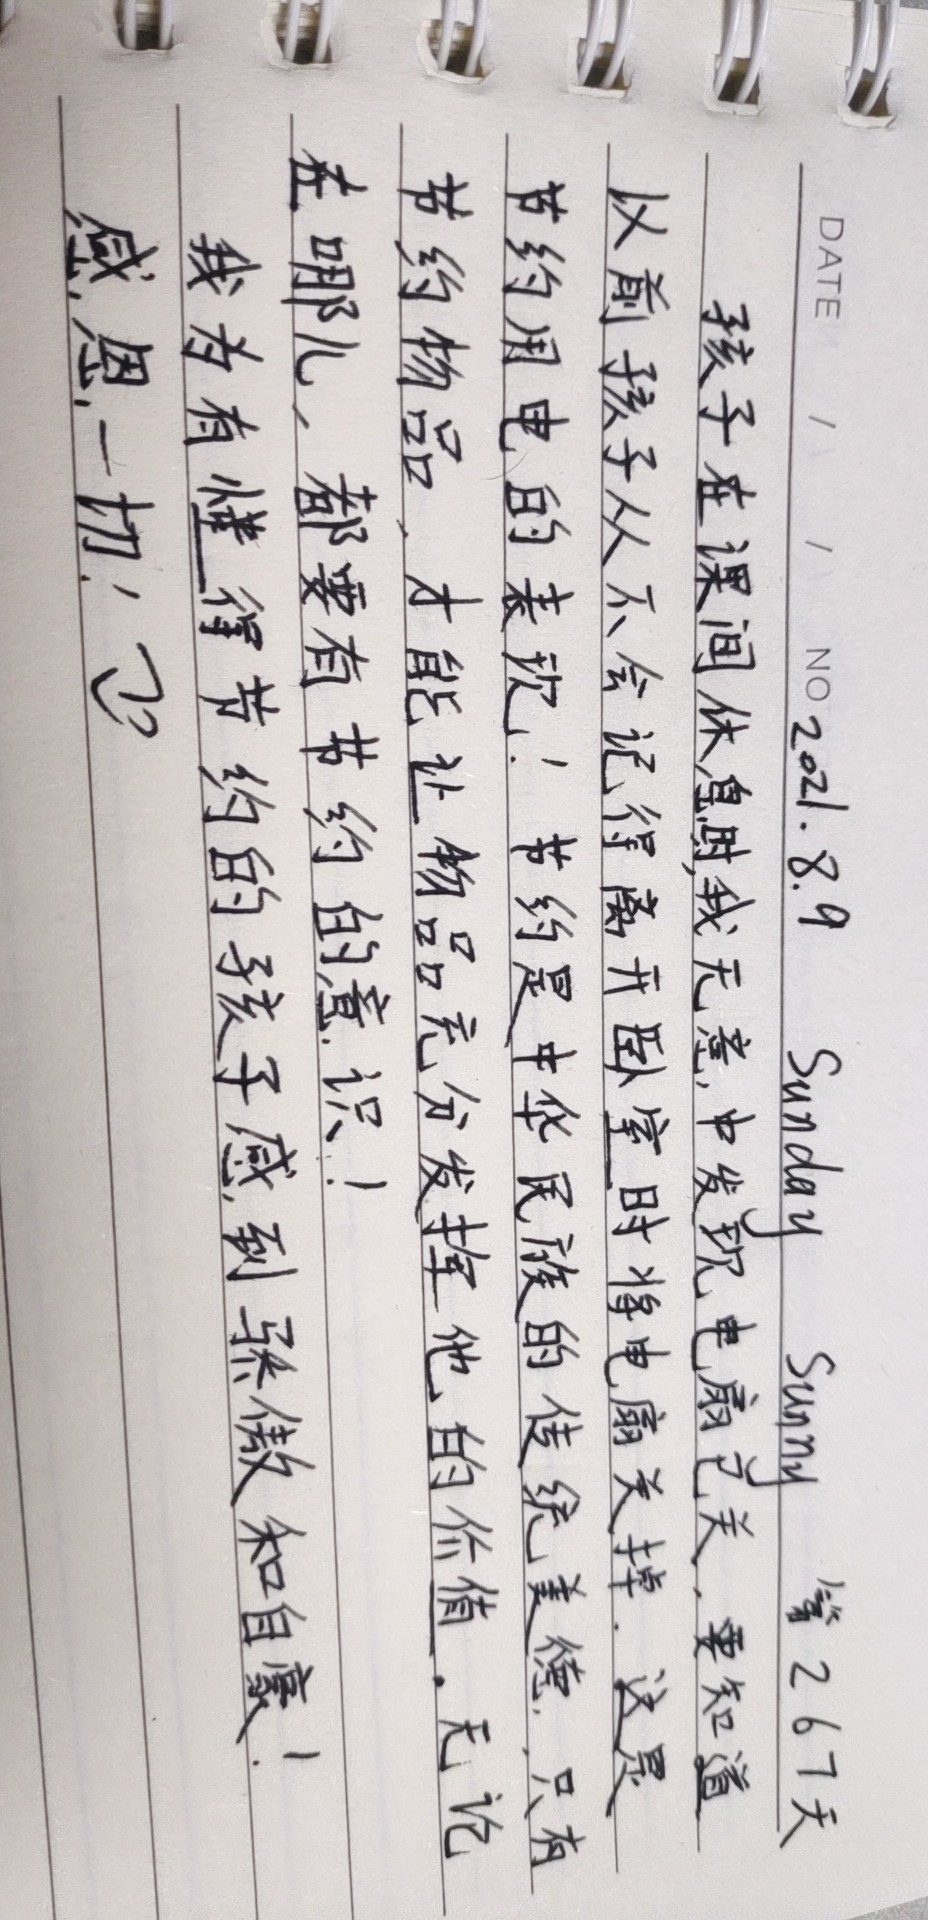 DATE / / NO 2021.8.9 Sunday Sunny 第267天
孩子在课间休息时,我无意中发现电扇已关,要知道
以前孩子从不会记得离开卧室时将电扇关掉,这是
节约用电的表现!节约是中华民族的传统美德,只有
节约物品,才能让物品充分发挥他的价值。无论
在哪儿,都要有节约的意识!
我为有懂得节约的孩子感到骄傲和自豪!
感恩一切!